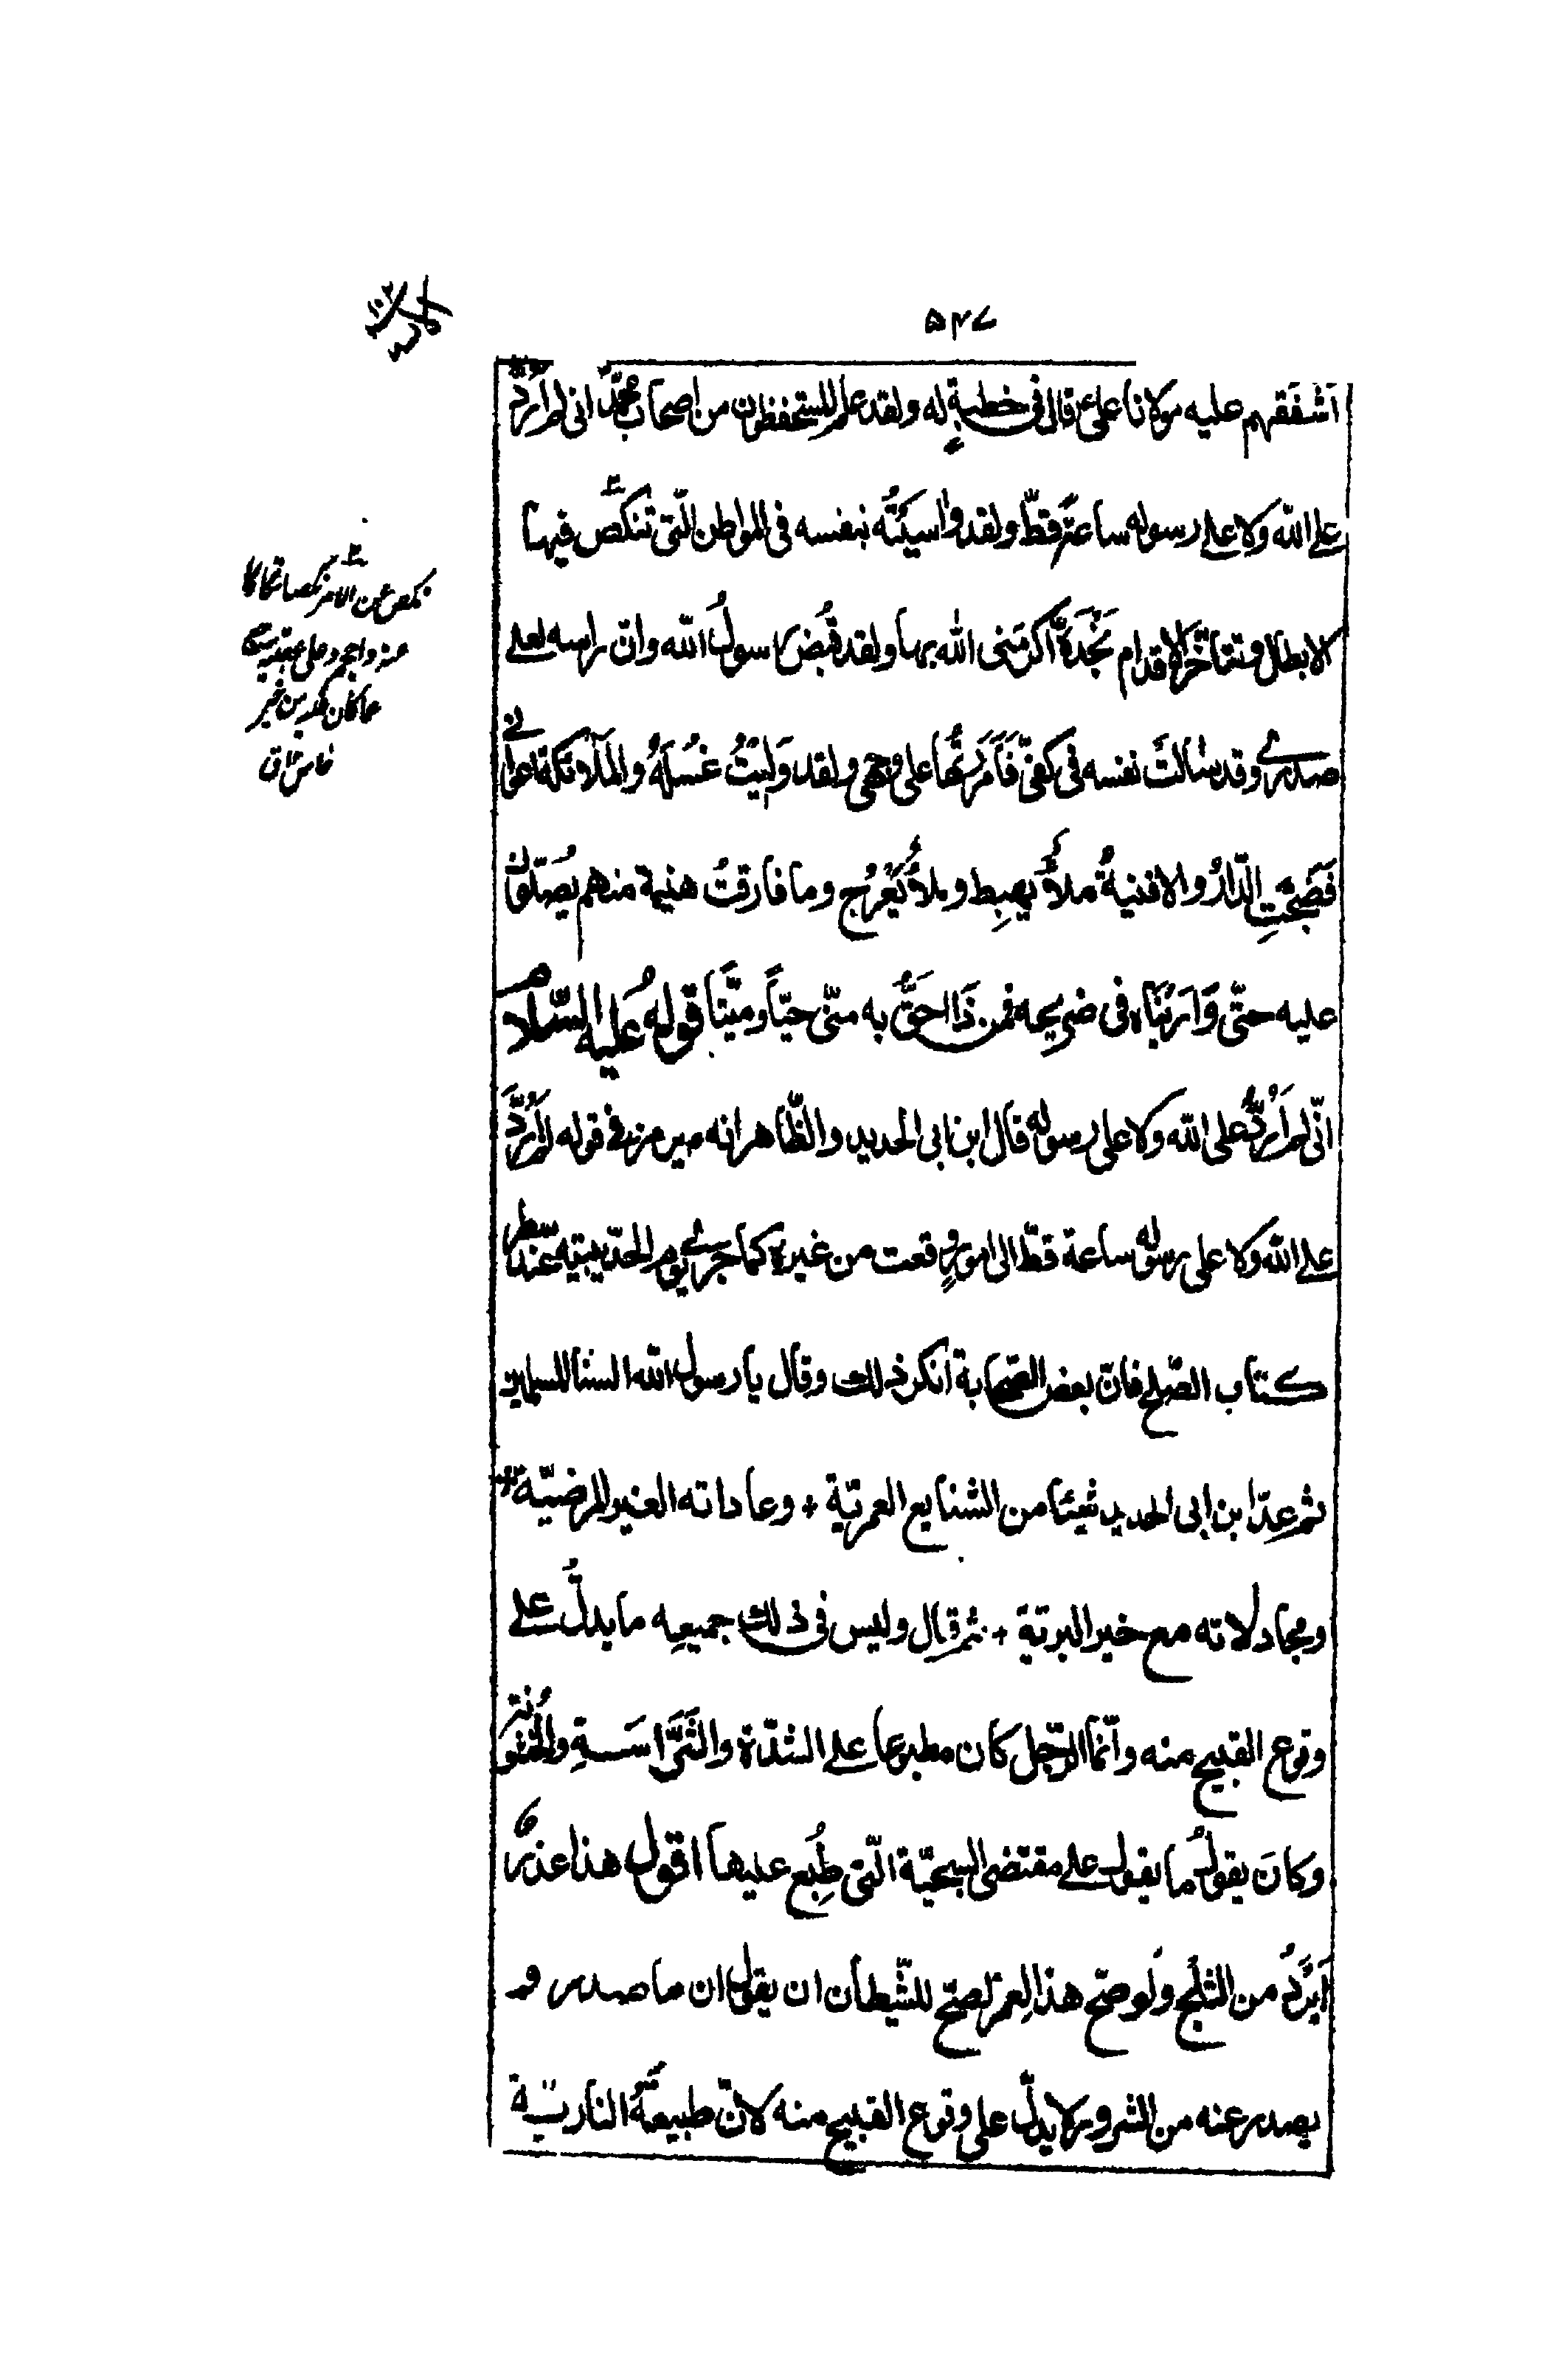 ۵۴۷
اَشْفَقهم عليه مولانا علىّ ع قال فى خطبةٍ له ولقد علم المستحفظون من اصحاب محمّد انى لم اَرُدّ
على الله ولا على رسوله ساعةً قطّ ولقد واسيتُه بنفسه فى المواطن الّتى تنكصُ فيها
الابطال وتتاخّر الاقدام نَجْدَةً اكرمَنى الله بها ولقد قُبِض رسولُ الله وانّ راسه لعلى
صدرى وقد سالَتْ نفسه فى كفىّ فَاَمْرَرْتُها على وجهى ولقد وَلّيتُ غُسْلَهُ والملآئكة اعوانى
فضجّتِ الدّارُ والافنيةُ ملأٌ يهبِط وملأٌ يَعْرُج وما فارقتُ هنيمة منهم يُصلّون
عليه حتّى وَارَيْنَاه فى ضريحه فمن ذَا احَقُّ به منّى حيّاً وميّتاً قولُه عليه السّلام
انّى لم اَرُدَّ على الله ولا على رسوله قال ابن ابى الحديد والظّاهر انه يرمز فى قوله لم اَرُدَّ
على الله ولا على رسوله ساعة قطّ الى امورٍ وقعت من غيره كما جرى يوم الحديبيّه عند سطر
كتاب الصّلح فانّ بعض الصّحابة انكر ذلك وقال يا رسول الله السنا المسلمين
ثم عدّ ابن ابى الحديد شيئا من الشنايع العمريّة + وعاداته الغير المرضيّة
ومجادلاته مع خير البريّة + ثم قال وليس فى ذلك جميعِه ما يدلُّ على
وقوع القبيح منه وانّما الرّجل كان مطبوعا على الشدّة والشَّرَاسَةِ والخشونة
وكانَ يقولُ ما يقول على مقتضى السجيّة الّتى طُبِع عليها اقول هذا عذرٌ
اَبْرَدُ من الثلج ولو صحّ هذا لعمر لصحّ للشّيطان ان يقول ان ما صدر و
يصدر عنه من الشرور لا يدلّ على وقوع القبيح منه لانّ طبيعتَهُ الناريّة
نكص عن الامر نكصا